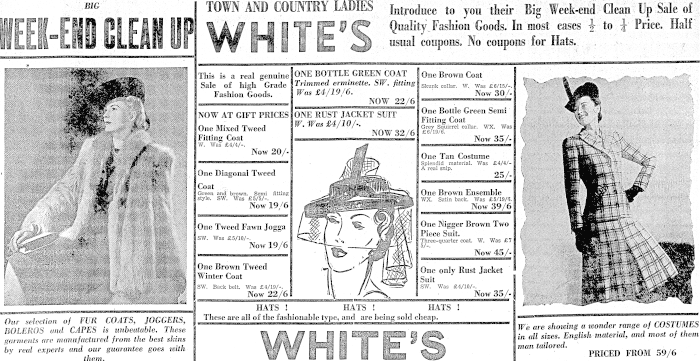 BIG
WEEK-END CLEAN UP
TOWN AND COUNTRY LADIES
WHITE'S
Introduce to you their Big Week-end Clean Up Sale of
Quality Fashion Goods. In most cases ½ to ¼ Price. Half
usual coupons. No coupons for Hats.
Our selection of FUR COATS, JOGGERS,
BOLEROS and CAPES is unbeatable. These
garments are manufactured from the best skins
by real experts and our guarantee goes with
them.
This is a real genuine
Sale of high Grade
Fashion Goods.
NOW AT GIFT PRICES
One Mixed Tweed
Fitting Coat
W. Was £4/4/-.
Now 20/-
One Diagonal Tweed
Coat
Green and brown. Semi fitting
style. SW. Was £5/5/-.
Now 19/6
One Tweed Fawn Jogga
SW. Was £5/10/-.
Now 19/6
One Brown Tweed
Winter Coat
SW. Back belt. Was £4/10/-.
Now 22/6
ONE BOTTLE GREEN COAT
Trimmed erminette. SW. fitting
Was £4/19/6.
NOW 22/6
ONE RUST JACKET SUIT
W. Was £4/10/-.
NOW 32/6
One Brown Coat
Skunk collar. W. Was £6/15/-.
Now 30/-
One Bottle Green Semi
Fitting Coat
Grey Squirrel collar. WX. Was
Now 35/-
One Tan Costume
Splendid material. W. Was £4/4/-.
A real snip.
25/-
One Brown Ensemble
WX. Satin back. Was
Now 39/6
One Nigger Brown Two
Piece Suit.
Three-quarter coat. W. Was £7
Now 45/-
One only Rust Jacket
Suit
SW. Was £4/10/-
Now 35/-
HATS ! HATS ! HATS !
These are all of the fashionable type, and are being sold cheap.
WHITE'S
We are showing a wonder range of COSTUMES
in all sizes. English material, and most of them
man tailored.
PRICED FROM 59/6